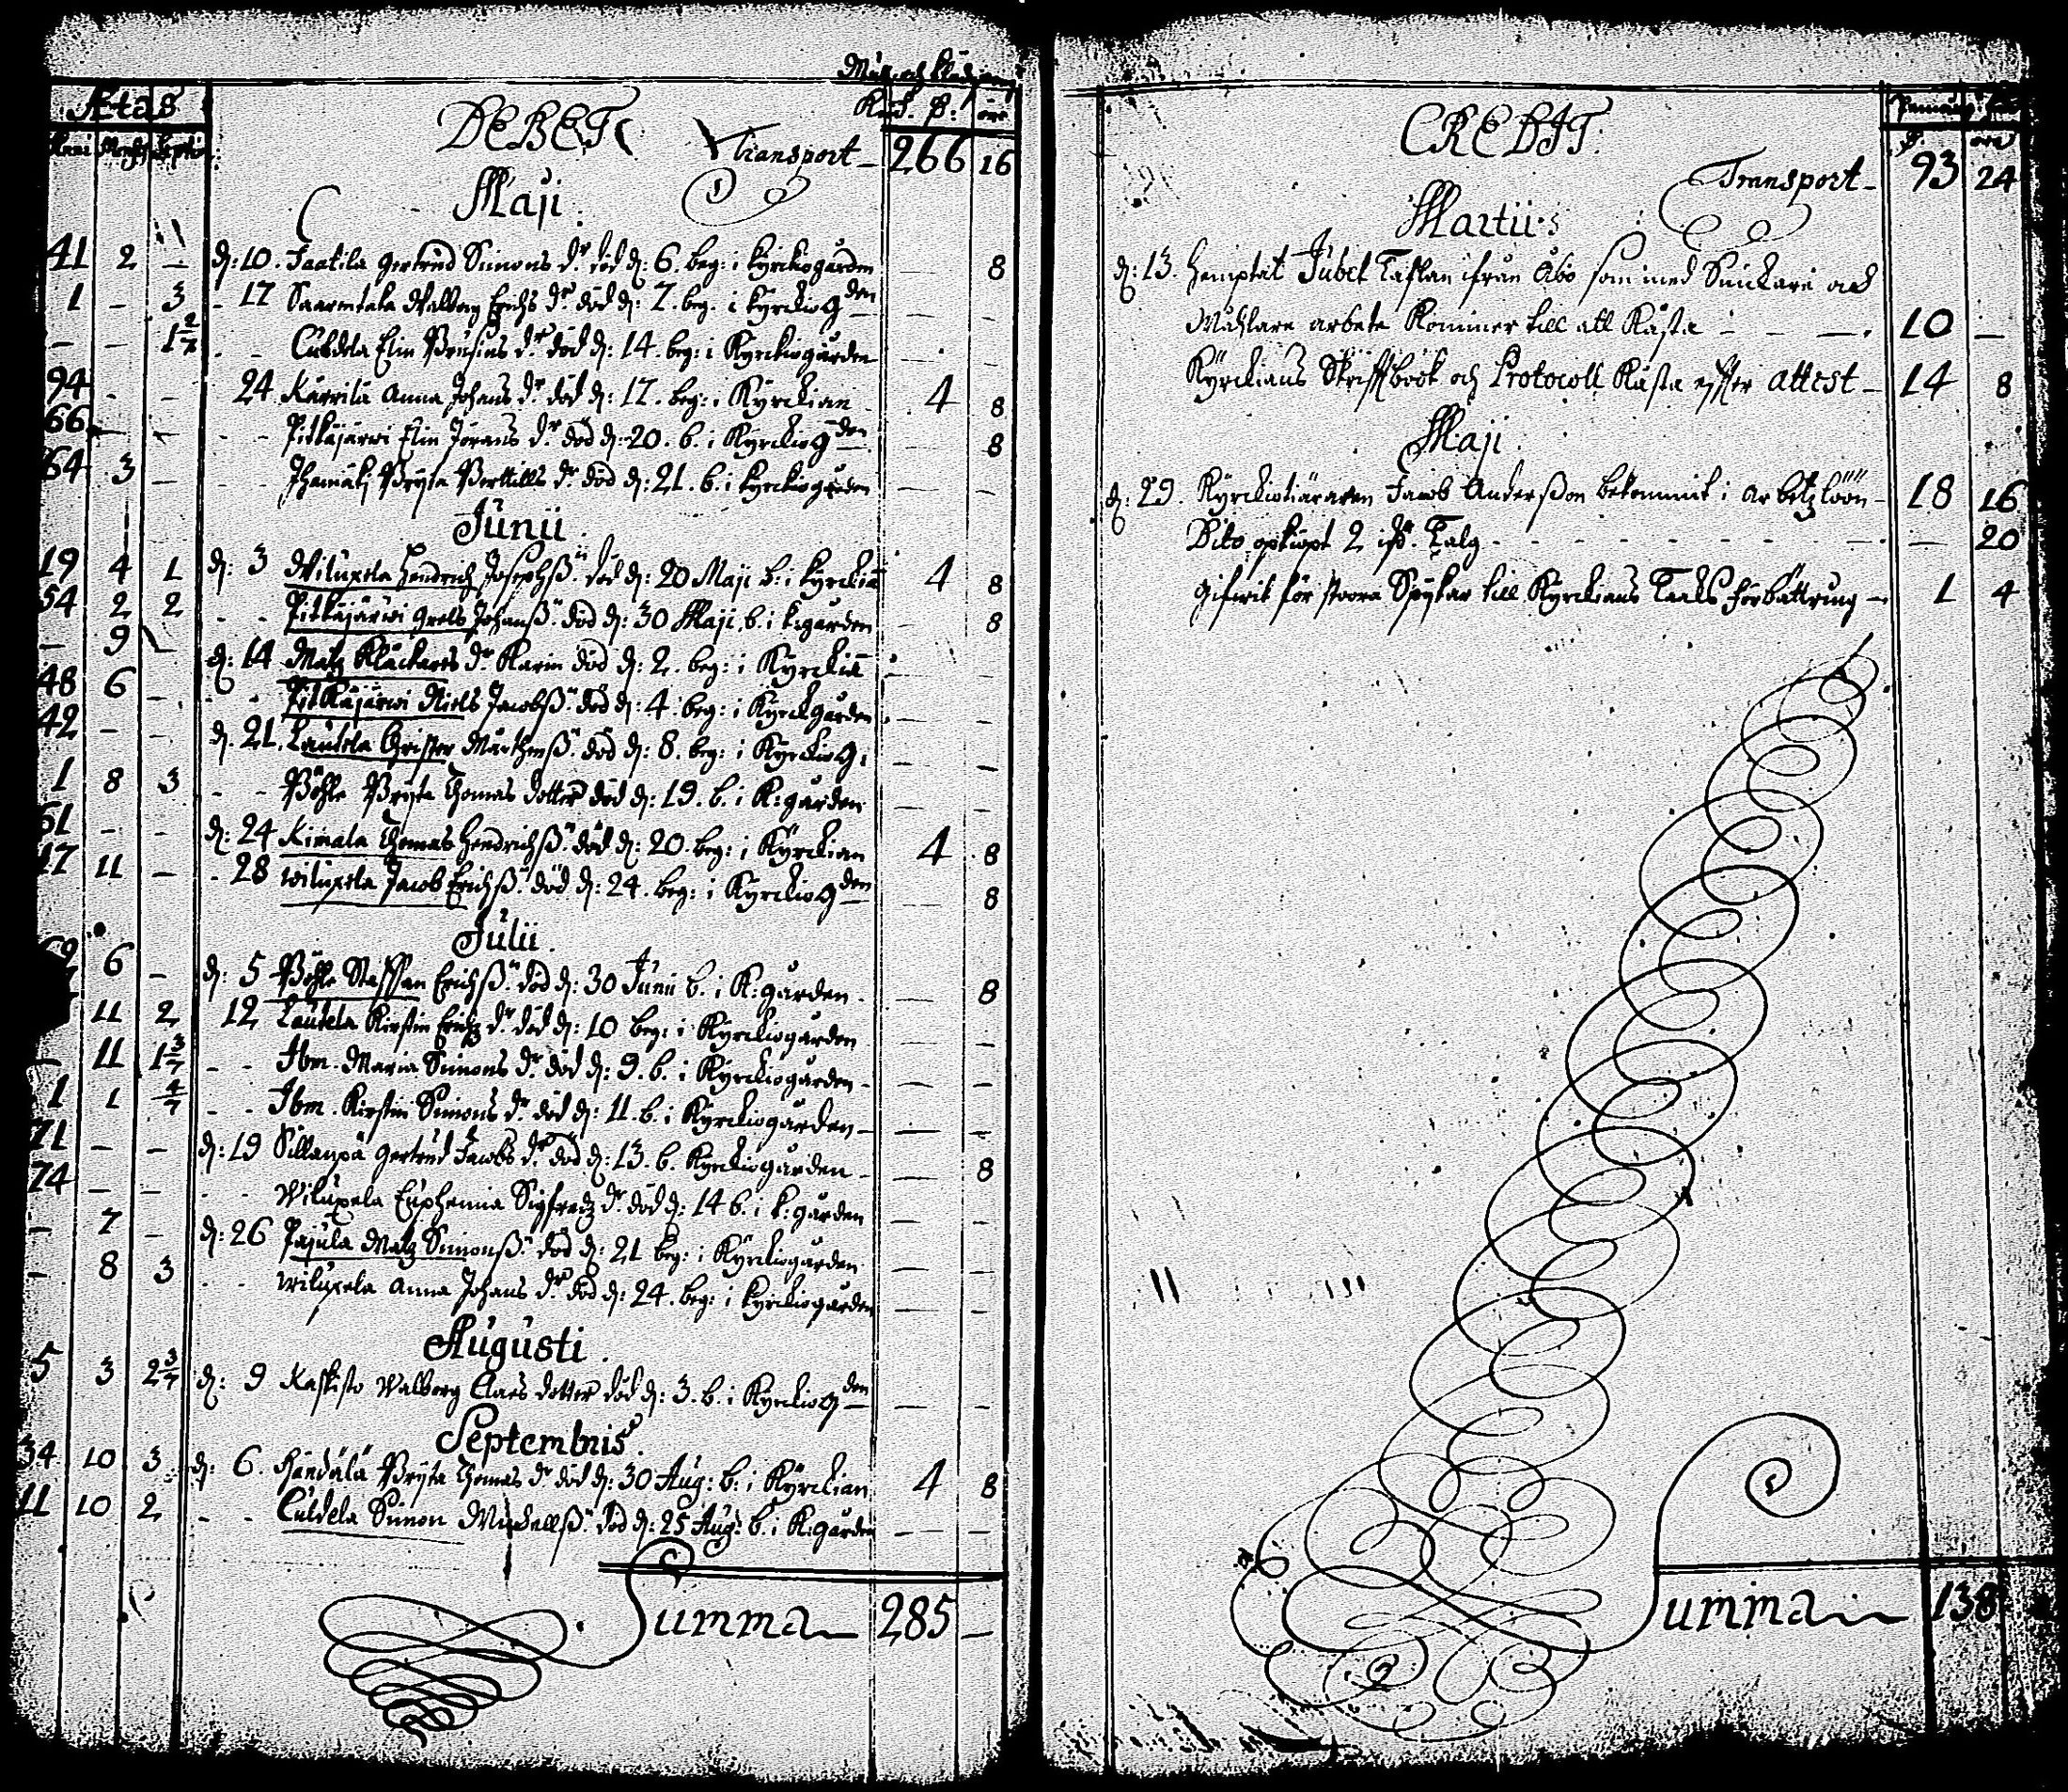 Ætas
DEBET
Transport 266 16
Maji
41 2 — d: 10. Gertrud Simons dr. död d: 6. beg: i Kyrkiogården — 8
1 — 3 - 17 Walborg Erichs dr. död d: 7. beg. i Kyrkiogden — —
— — 1 2/7 - - Culdela Elin dr. död d: 14. beg: i Kyrkiogården — —
94 - — 24 Anna Johans dr. död d: 17. beg: i Kyrckian 4 8
66 — — - - Pitkäjärwi Elin Jörans dr. död d: 20. b. i Kyrkiogden 8
64 3 — - - Bryta Bertills dr. död d: 21. b. i Kyrkiogården — —
Junii
19 4 1 d: 3 Wilupela Hendrich Josephß. död d: 20 Maji b: i Kyrckiā 4 8
54 2 2 - - Pitkäjärwi Grels Johanß. död d: 30 Maji, b. i K:gården — 8
— 9 — d: 14 Matz dr. Karin död d: 2. beg: i Kyrckiā - —
48 6 — - - Pitkäjärwi Niels Jacobß. död d: 4. beg: i Kyrckgården — —
42 — — d. 21. Lautela Christer Mårthenß. död d: 8. beg: i Kyrckiog: — —
1 8 3 - - Böhle Bryta Thomas dotter död d: 19. b. i K:gården — —
61 - — d: 24 Kimala Thomas Hendrichß. död d: 20. beg: i Kyrckian 4 8
17 11 — - 28 Wilupela Jacob Erichß. död d: 24. beg: i Kyrckiogden — 8
Julii
69 6 — d: 5 Böhle Staffan Erichß. död d: 30 Junii b. i K:gården — 8
11 2 12 Lautela Kirstin Erichz dr. död d: 10 beg: i Kyrckiogården — —
— 11 1 3/7 - - Ibm. Maria Simons dr. död d: 9. b. i Kyrckiogården — —
1 1 4/7 - - Ibm. Kirstin Simons dr. död d: 11. b. i Kyrckiogården — —
71 — — d: 19 Sillanpä Gertrud Jacobs dr. död d: 13. b. Kyrckiogården — 8
74 — — - - Wilupela Euphemia Sigfredz dr. död d: 14 b. i K:gården — —
— 7 — d: 26 Pajula Matz Simonß. död d: 21 beg: i Kyrckiogården — —
— 8 3 - - Wilupela Anna Johans dr. död d: 24. beg: i Kyrckiogården — —
Augusti
5 3 2 3/7 d: 9 Kaskisto Walborg Claes dotter död d: 3. b. i Kyrckiogden — —
Septembris
34 10 3 d: 6. Bryta Thomas dr. död d: 30 Aug: b: i Kyrckian 4 8
11 10 2 - - Culdela Simon Michellß. död d: 25 Aug: b. i K:gården — —
Summa 285 —
CREDIT.
öre
Transport 93 24
Martii
d: 13. Hemptat Jubel Taflan ifrån Åbo som med Snickare och
Måhlare arbete Kommer till att Kåsta 10 —
Kyrckians Skrifftbook och Protocoll Kåsta effter attest 14 8
Maji
d: 29. Jacob Anderßon bekommit i arbetzlöön 18 16
Dito opkiöpt 2 Talg — 20
Gifwit för stoora Spykar till Kyrckians Taaks förbättring 1 4
Summa 138